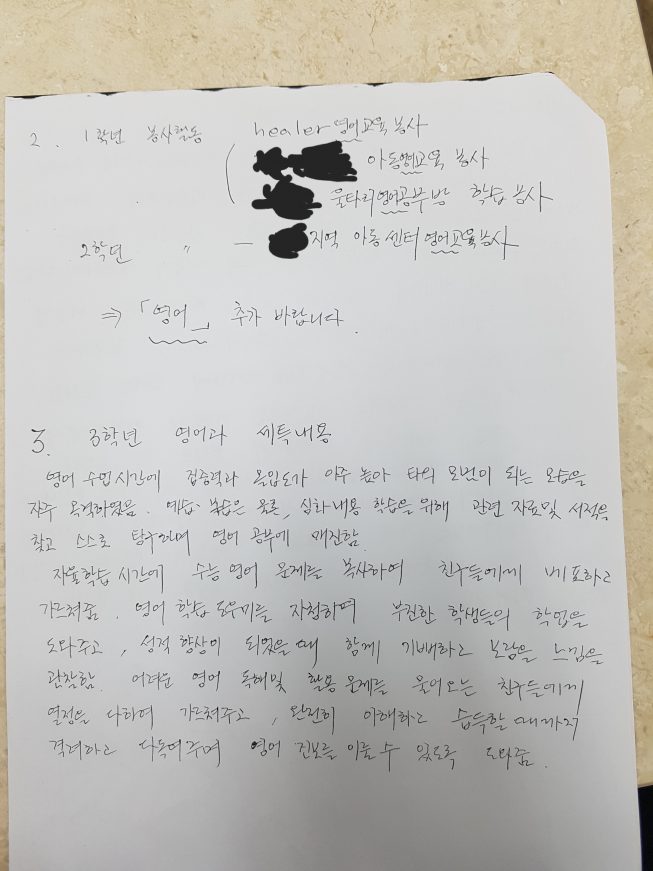 2. 1학년 봉사활동 healer 영어교육 봉사
아동영어교육 봉사
울타리영어공부방 학습 봉사
2학년 〃 — 지역 아동센터 영어교육봉사
⇒ 「영어」 추가 바랍니다.
3. 3학년 영어과 세특내용
영어 수업시간에 집중력과 몰입도가 아주 높아 타의 모범이 되는 모습을
자주 목격하였음. 예습·복습은 물론, 심화내용 학습을 위해 관련 자료및 서적을
찾고 스스로 탐구하며 영어 공부에 매진함.
자율학습 시간에 수능 영어 문제를 복사하여 친구들에게 배포하고
가르쳐줌. 영어 학습 도우미를 자청하며 부진한 학생들의 학업을
도와주고, 성적 향상이 되었을 때 함께 기뻐하고 보람을 느낌을
관찰함. 어려운 영어 독해및 활용문제를 물어오는 친구들에게
열정을 다하여 가르쳐주고, 완전히 이해하고 습득할 때까지
격려하고 다독여주며 영어 진보를 이룰 수 있도록 도와줌.